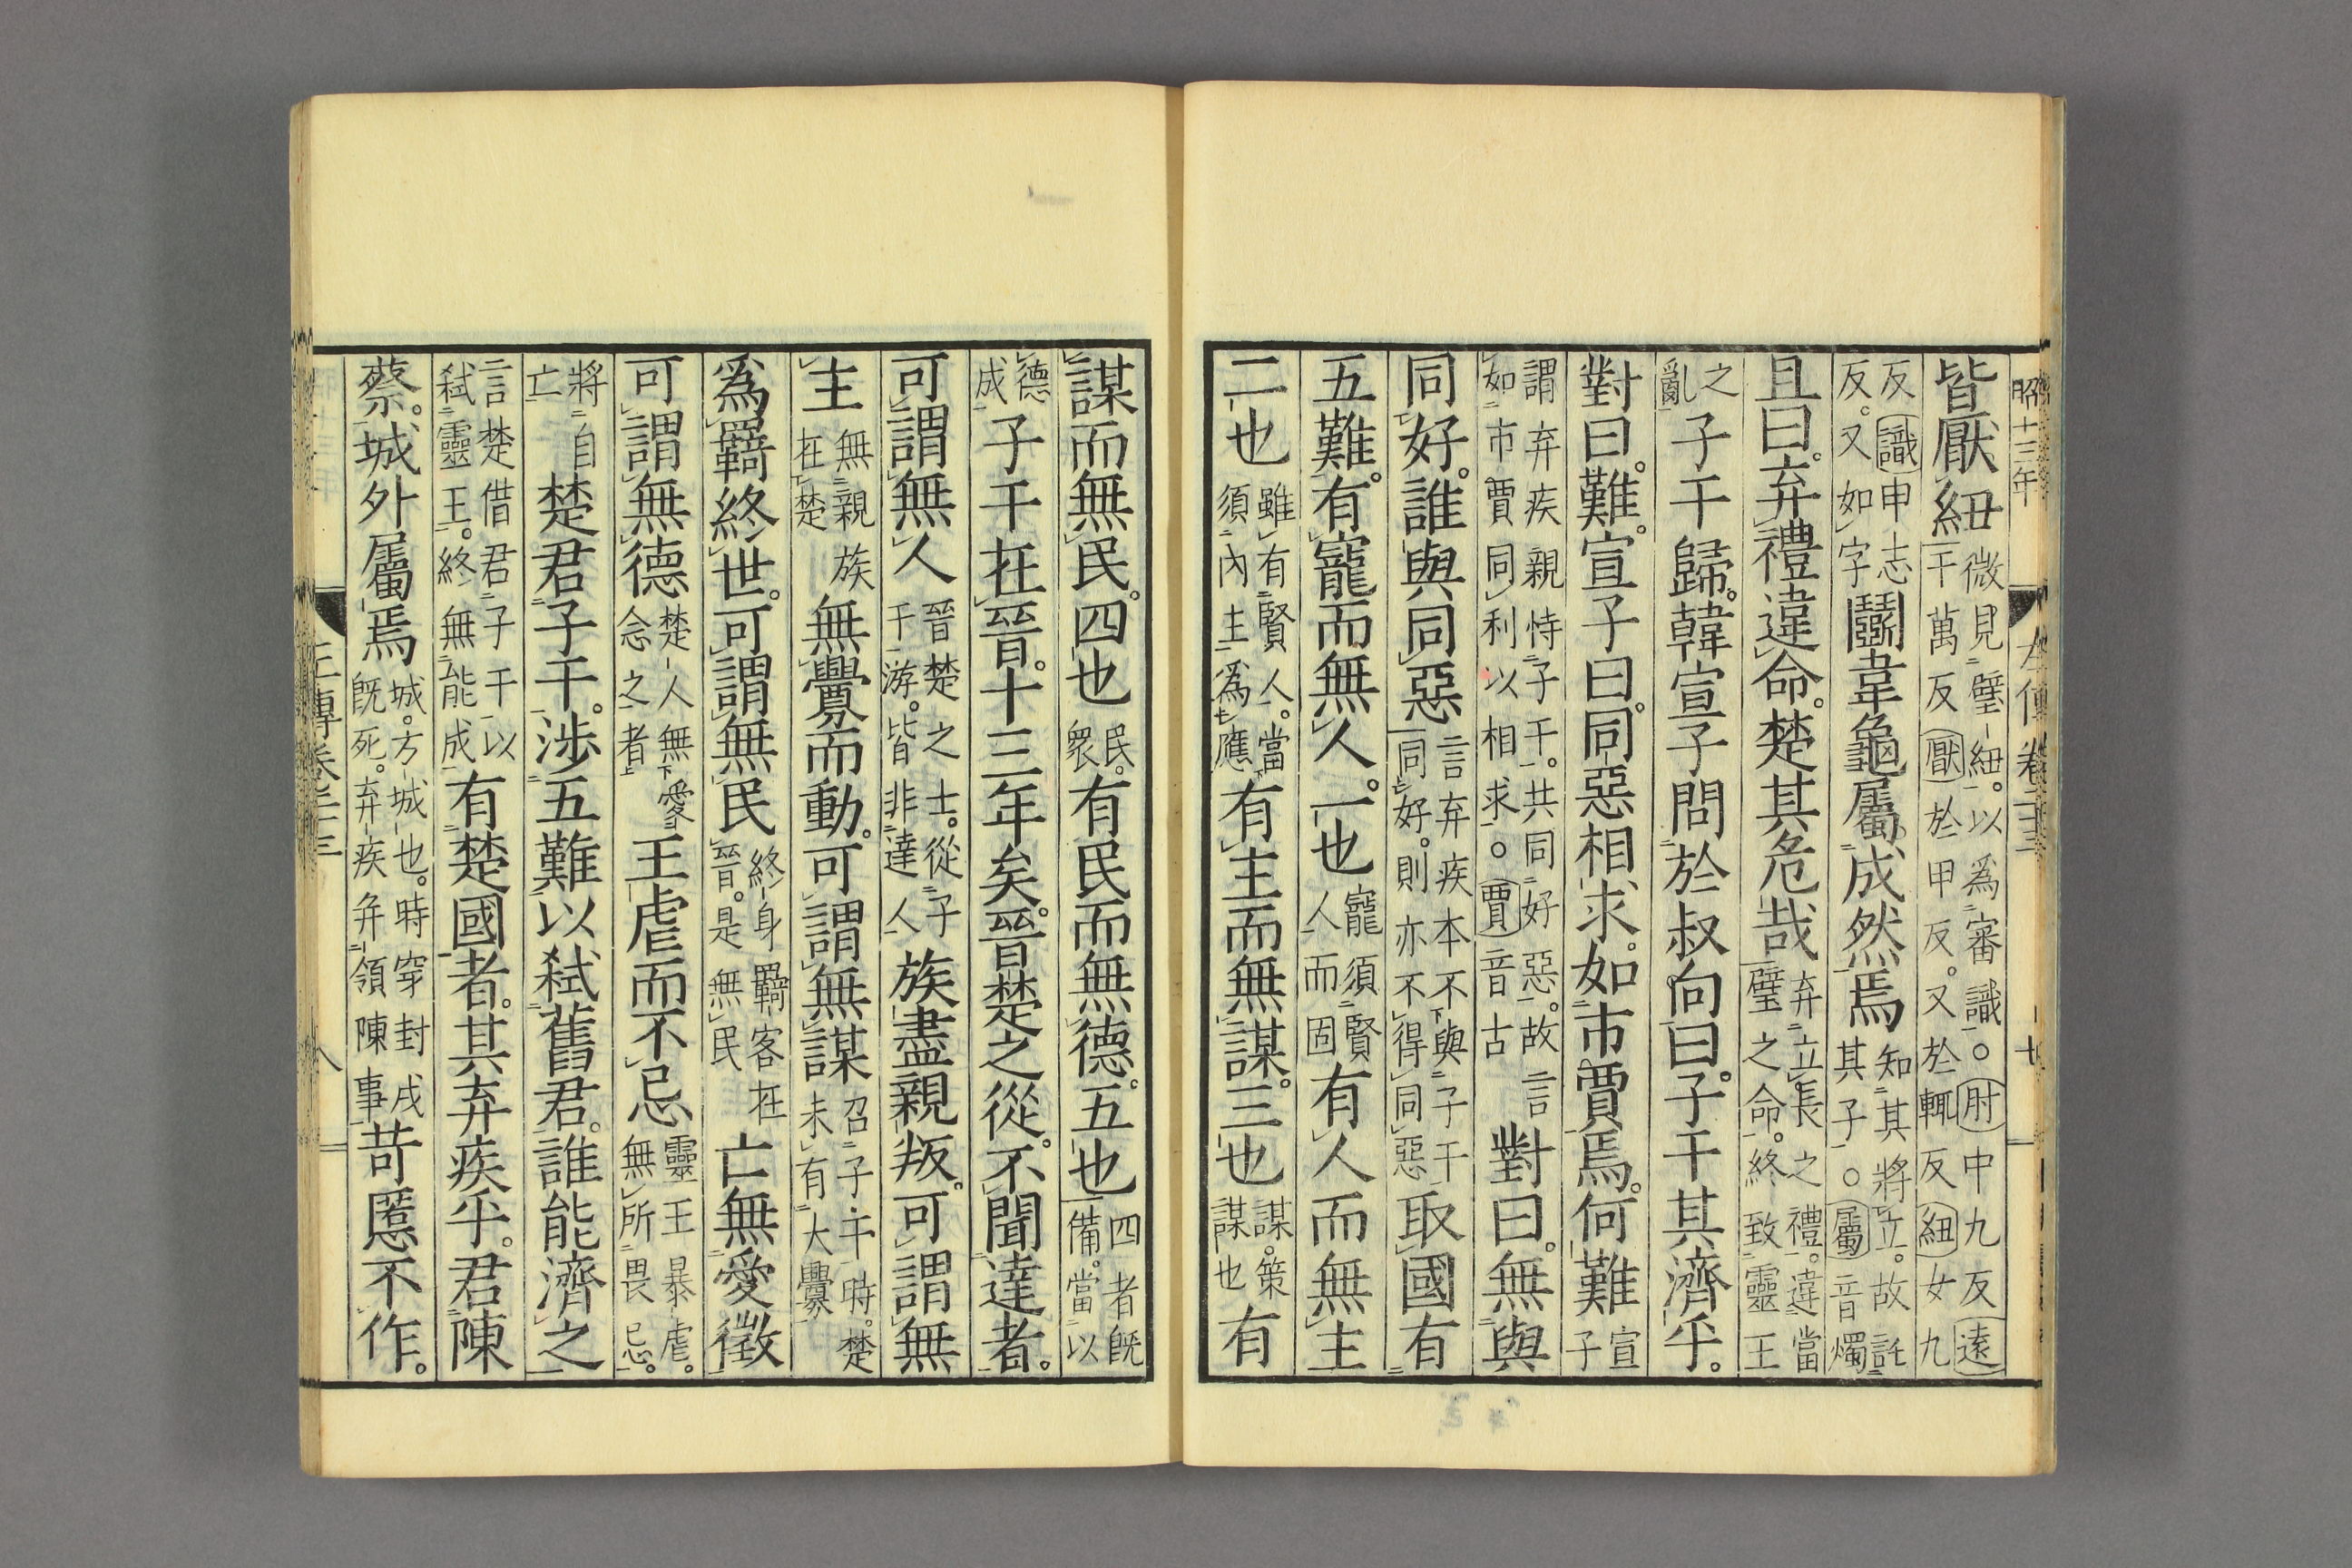 昭十三年
左傳卷二十三
皆厭紐微見璧紐。以爲審識。○肘中九反遠干萬反厭於甲反。又於輒反紐女九
反識申志反。又如字鬭韋龜屬成然焉知其將立。故託其子。○屬音燭
且曰。弃禮違命。楚其危哉弃立長之禮。違當璧之命。終致靈王
之亂子干歸。韓宣子問於叔向曰。子干其濟乎。
對曰。難。宣子曰。同惡相求。如市賈焉。何難宣子
謂弃疾親恃子干。共同好惡。故言如市賈同利以相求。○賈音古對曰。無與
同好。誰與同惡言弃疾本不與子干同好。則亦不得同惡取國有
五難。有寵而無人。一也寵須賢人而固有人而無主
二也雖有賢人。當須內主爲應有主而無謀。三也謀。策謀也有
謀而無民。四也民。衆有民而無德。五也四者旣備。當以
德成子干在晉。十三年矣。晉楚之從。不聞達者。
可謂無人晉楚之士。從子干游。皆非達人族盡親叛。可謂無
主無親族在楚無釁而動。可謂無謀召子干時。楚未有大釁
爲羇終世。可謂無民終身羇客在晉。是無民亡無愛徵
可謂無德楚人無愛念之者王虐而不忌靈王暴虐。無所畏忌。
將自亡楚君子干。涉五難以弑舊君。誰能濟之
言楚借君子干以弑靈王。終無能成有楚國者。其弃疾乎。君陳
蔡。城外屬焉城。方城也。時穿封戌旣死。弃疾并領陳事苛慝不作。